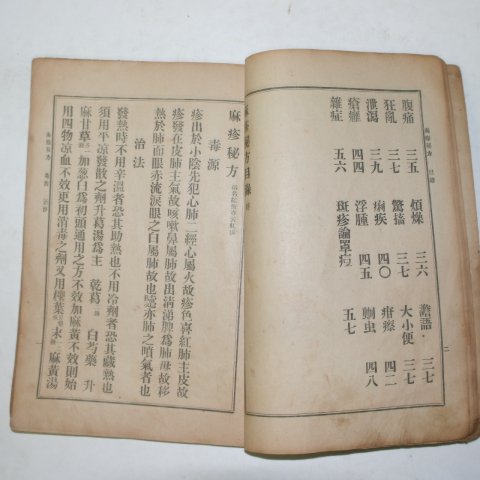 腹痛 三五 煩燥 三六 譫語 三七
狂亂 三七 驚搐 三七 大小便 三七
泄瀉 三九 痢疾 四〇 疳瘵 四二
瘡癰 四四 浮腫 四五 蛔虫 四八
雜症 五六 斑疹論罩痘 五七
麻疹秘方目錄 終
麻疹秘方
毒源
疹出於小陰先犯心肺二經心屬火故疹色喜紅肺主皮故
疹發在皮肺主氣故咳嗽鼻屬肺故出淸涕脾爲肺母故移
熱於肺而眼赤流淚眼之白屬肺故也嚔亦肺之噴氣者也
治法
發熱時不用辛溫者恐其助熱也不用冷劑者恐其瀎熱也
須用平凉發散之劑升葛湯爲主 乾葛 白芍藥 升
麻甘草 加葱白爲初頭通用之方不效加麻黃不效則始
用四物凉血不效更用消毒之劑又用檉葉 末 麻黃湯